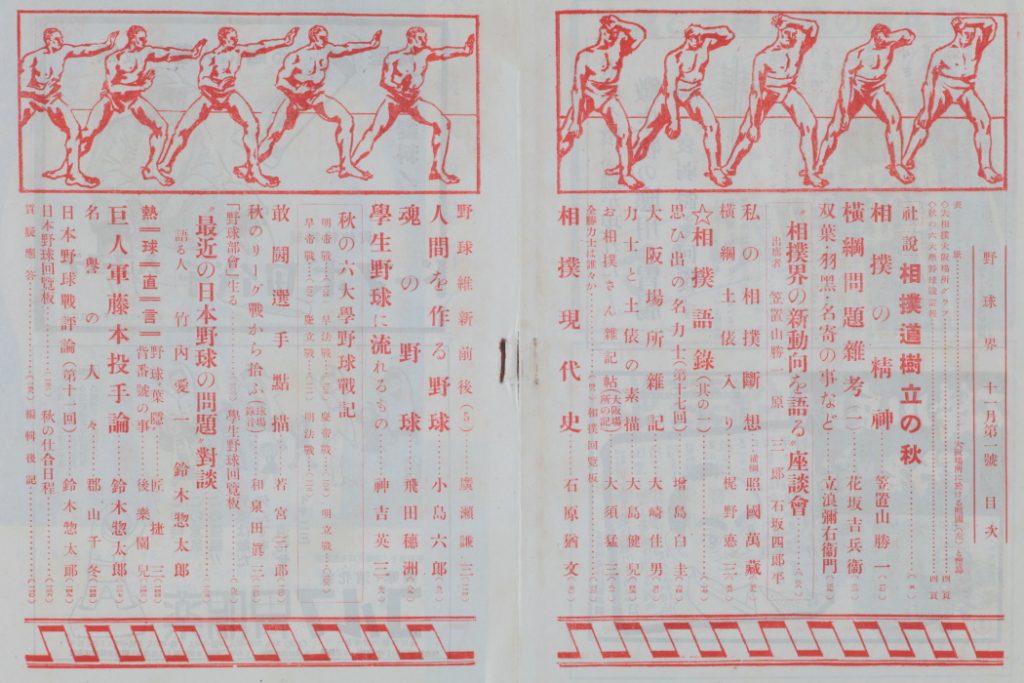 野球界 十一月第 號目次
表紙
◇大相撲大阪場所グラフ 四頁
◇秋の六大學野球 四頁
社説 相撲道樹立の秋
相撲の精神 笠置山勝一
橫綱問題雜考(二) 花坂吉兵衞
双葉・羽黑・名寄の事など 立浪彌右衞門
“相撲界の新動向を語る”座談會
出席者 笠置山勝一 原三郎 石坂四郎平
私の相撲斷想 前橫綱 照國萬藏
橫綱土俵入り 梶野悳三
☆相撲語錄(其の一)
思ひ出の名力士(第十七回) 增島白圭
大阪場所雜記 大崎佳男
力士と土俵の素描 大島健兒
お相撲さん雜記帖(大阪場所の記) 大須猛三
全勝力士は誰々か 相撲回覽板
相撲現代史 石原猶文
野球維新前後 廣瀨謙三
人間を作る野球 小島六郎
魂の野球 飛田穗洲
學生野球に流れるもの 神吉英三
秋の六大學野球戰記
明帝戰 早法戰 慶帝戰 明立戰
早帝戰 慶立戰 明法戰
敢鬪選手點描 若宮三郎
秋のリーグ戰から拾ふ(球場錄音) 和泉田眞三
「野球部會」生る 學生野球回覽板
“最近の日本野球の問題”對談
語る人 竹內愛一 鈴木惣太郎
熱球直言 野球葉隱 匠捷三
背番號の事 後樂園兒
巨人軍藤本投手論 鈴木惣太郎
名譽の人々 郡山千冬
日本野球戰評論(第十一回) 鈴木惣太郎
日本野球回覽板 秋の仕合日程
質疑應答 編輯後記